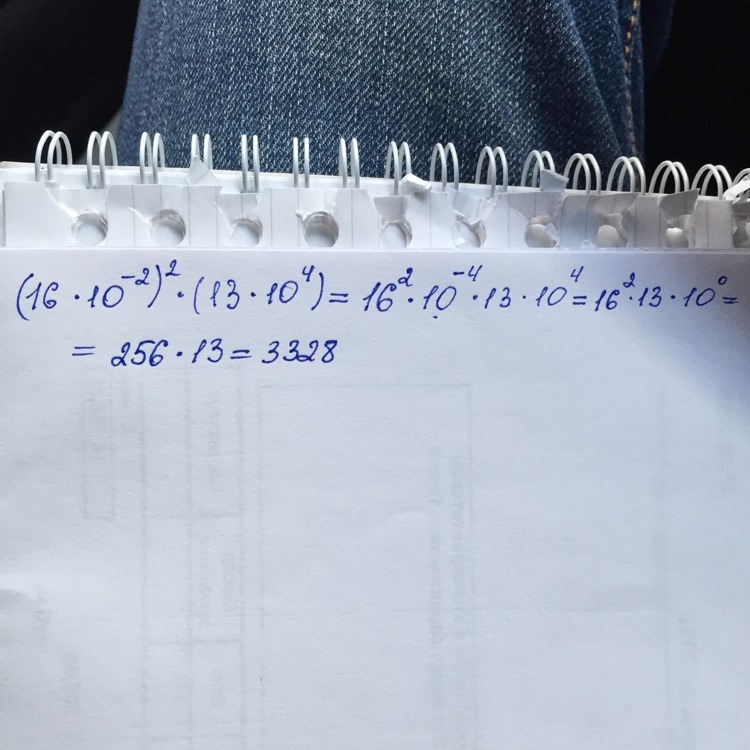 (16 · 10⁻²)² · (13 · 10⁴) = 16² · 10⁻⁴ · 13 · 10⁴ = 16² · 13 · 10⁰ =
= 256 · 13 = 3328